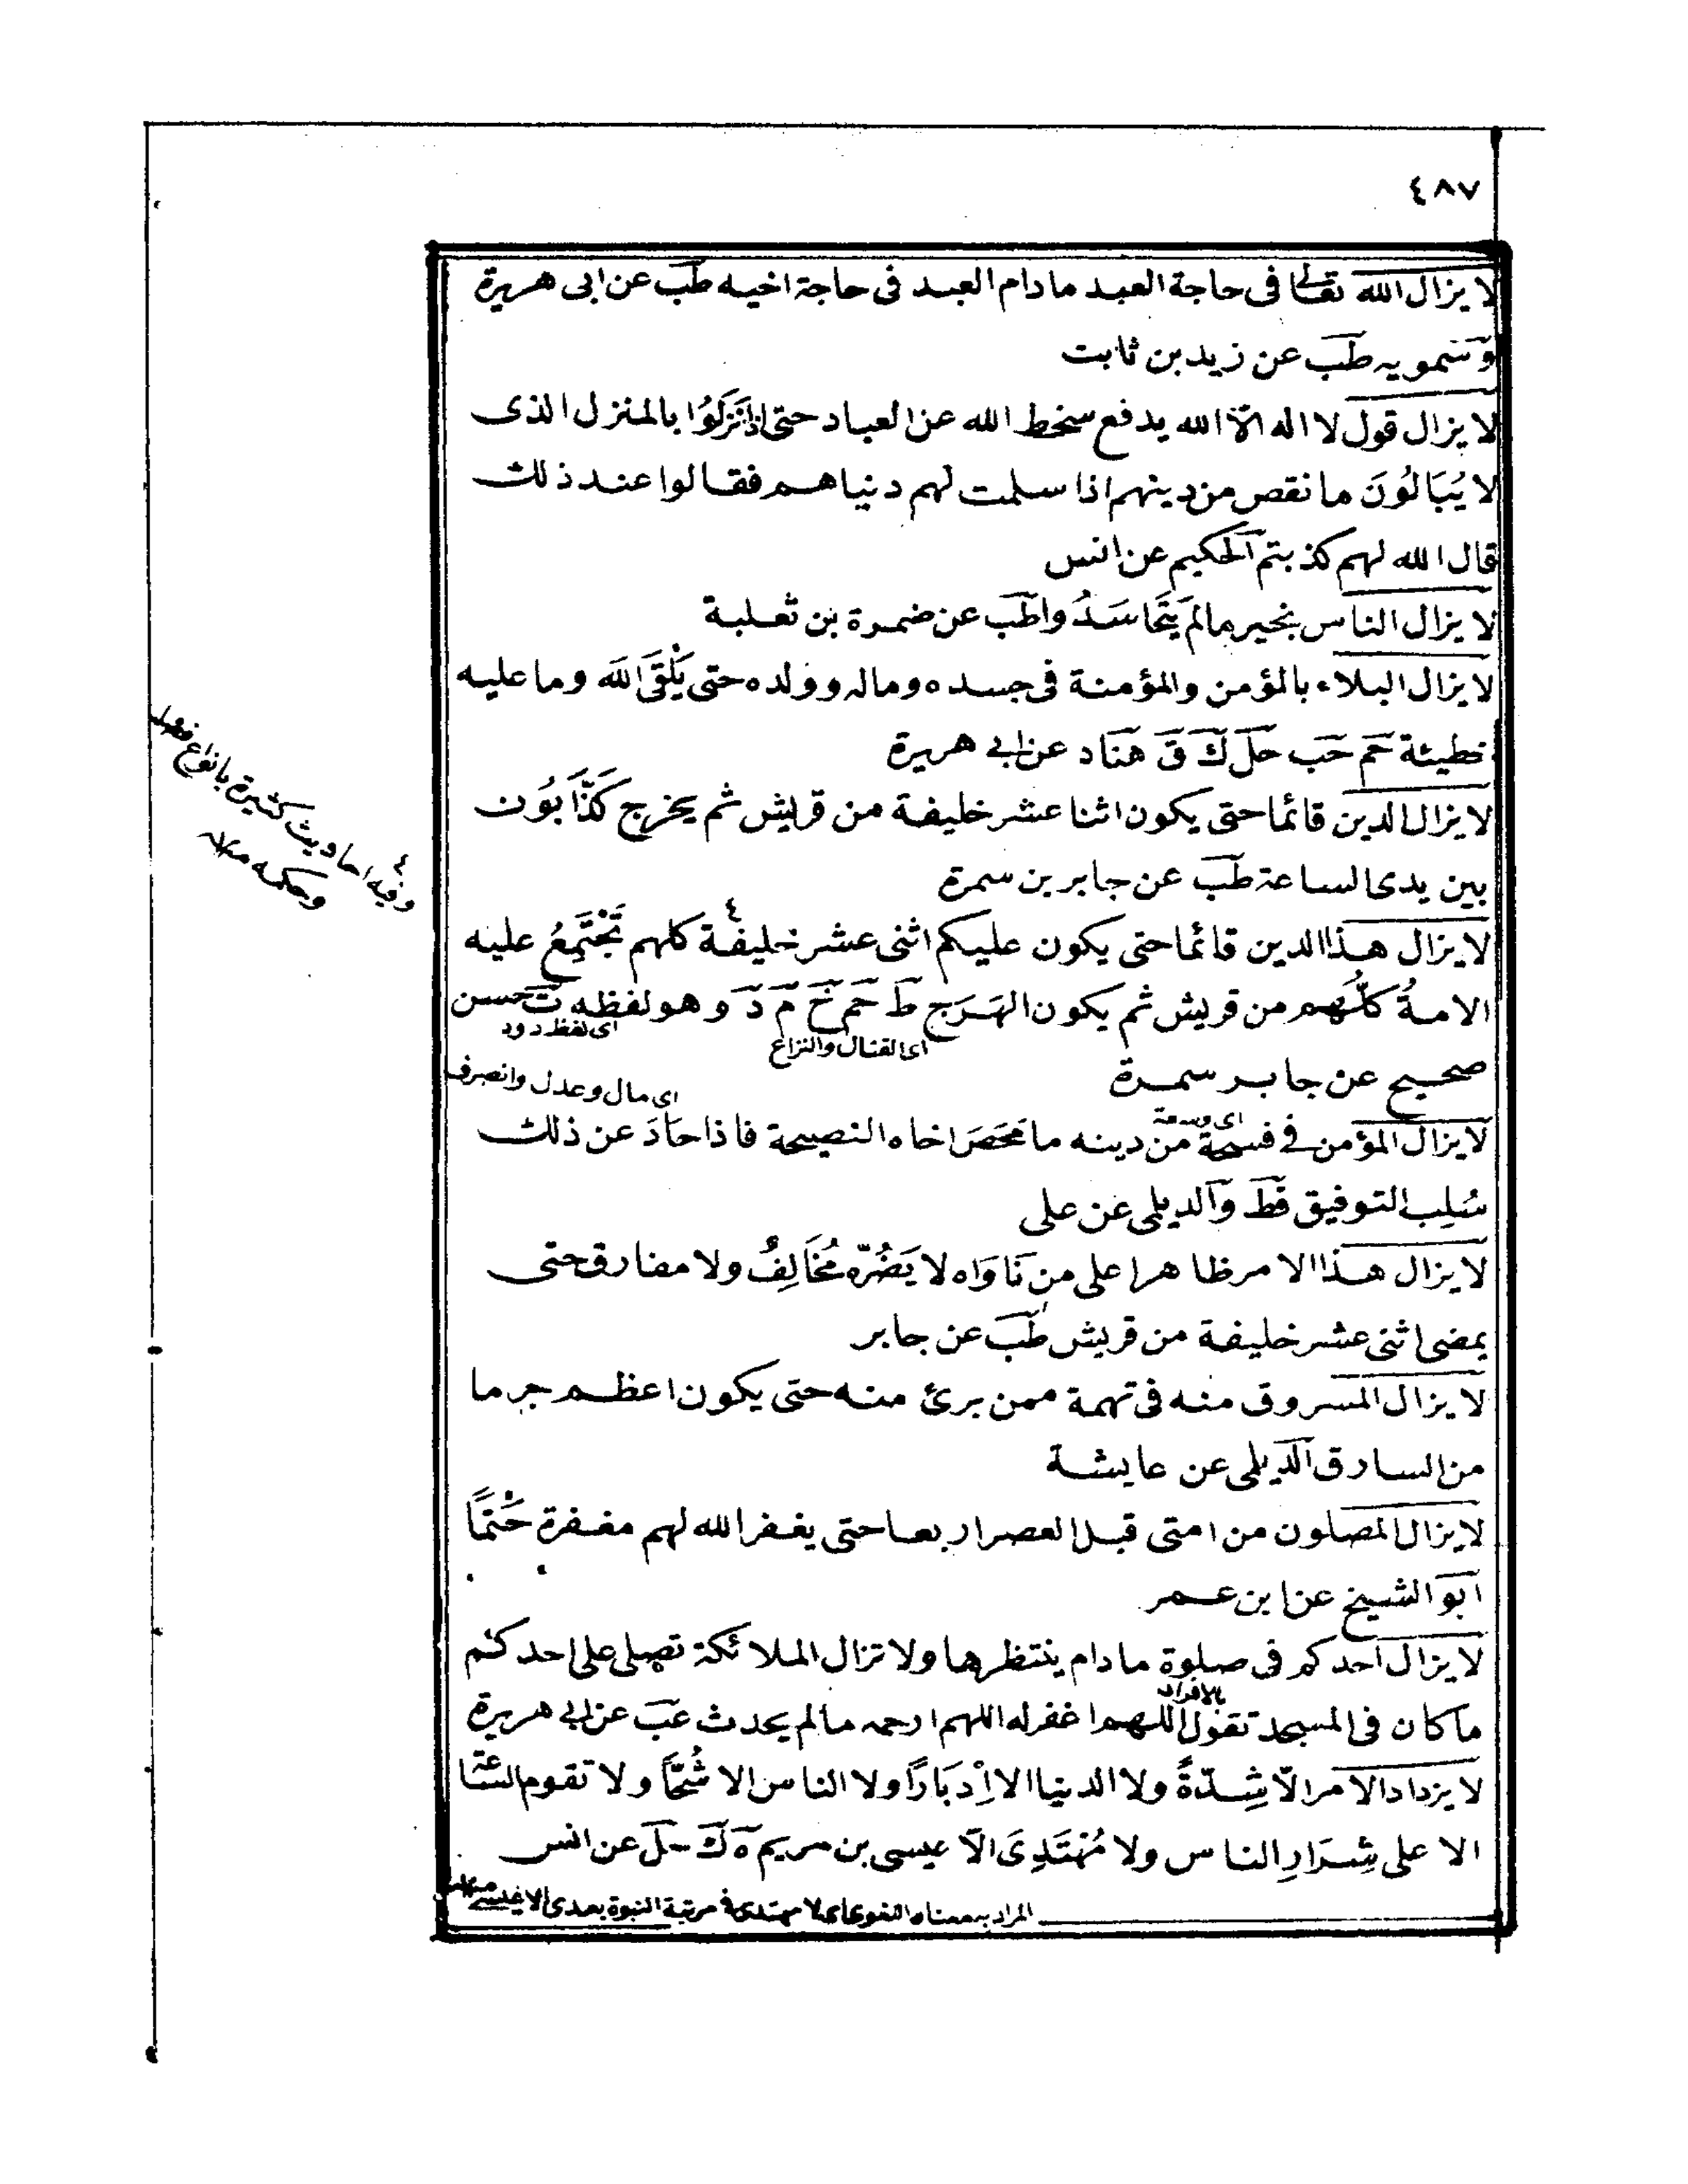 ٤٨٧
لا يزال الله تعالى فى حاجة العبد ما دام العبد فى حاجة اخيه طب عن ابى هريرة
وسمويه طب عن زيد بن ثابت
لا يزال قول لا اله الّا الله يدفع سخط الله عن العباد حتى اذا نَزَلُوا بالمنزل الذى
لا يُبَالُونَ ما نقص من دينهم اذا سلمت لهم دنياهم فقالوا عند ذلك
قال الله لهم كذبتم الحكيم عن انس
لا يزال الناس بخير مالم يَتَحَاسَدُوا طب عن ضمرة بن ثعلبة
لا يزال البلاء بالمؤمن والمؤمنة فى جسده وماله وولده حتى يَلْقَى اللهَ وما عليه
خطيئة حم حب حل ك ق هناد عن ابى هريرة
لا يزال الدين قائما حتى يكون اثنا عشر خليفة من قريش ثم يخرج كَذَّابُون
بين يدى الساعة طب عن جابر بن سمرة
لا يزال هذا الدين قائما حتى يكون عليكم اثنى عشر خليفة ٤ كلهم تَجْتَمِعُ عليه
الامةُ كلُّهم من قريش ثم يكون الهَرَج ط حم خ م د وهو لفظه ت حسن
اى لفظ دود
اى القتال والنزاع
صحيح عن جابر سمرة
اى مال وعدل وانصرف
اى وسعة
لا يزال المؤمن فى فسحة من دينه ما مَحَصَ اخاه النصيحة فاذا حَادَ عن ذلك
سُلِب التوفيق قط والديلمى عن على
لا يزال هذا الامر ظاهرا على من نَاوَاه لا يَضُرّه مُخَالِفٌ ولا مفارق حتى
يمضى اثنى عشر خليفة من قريش طب عن جابر
لا يزال المسروق منه فى تهمة ممن برئ منه حتى يكون اعظم جرما
من السارق الديلمى عن عايشة
لا يزال المصلون من امتى قبل العصر اربعا حتى يغفر الله لهم مغفرة حَتْمًا
ابو الشيخ عن ابن عمر
لا يزال احدكم فى صلوة ما دام ينتظرها ولا تزال الملائكة تصلى على احدكم
بالافراد
ما كان فى المسجد تقول اللهم اغفر له اللهم ارحمه مالم يحدث عب عن ابى هريرة
لا يزداد الامر الّا شِدّةً ولا الدنيا الا اِدْبَارًا ولا الناس الا شُحًّا ولا تقوم الساعة
الا على شِرَارِ الناس ولا مُهْتَدِىَ الّا عيسى بن مريم ه ك حل عن انس
المراد به معناه اللغوى اى لا مهتدى فى مرتبة النبوة بعدى الا عيسى
٤
وفيه احاديث كثيرة بانواع
وحكمه